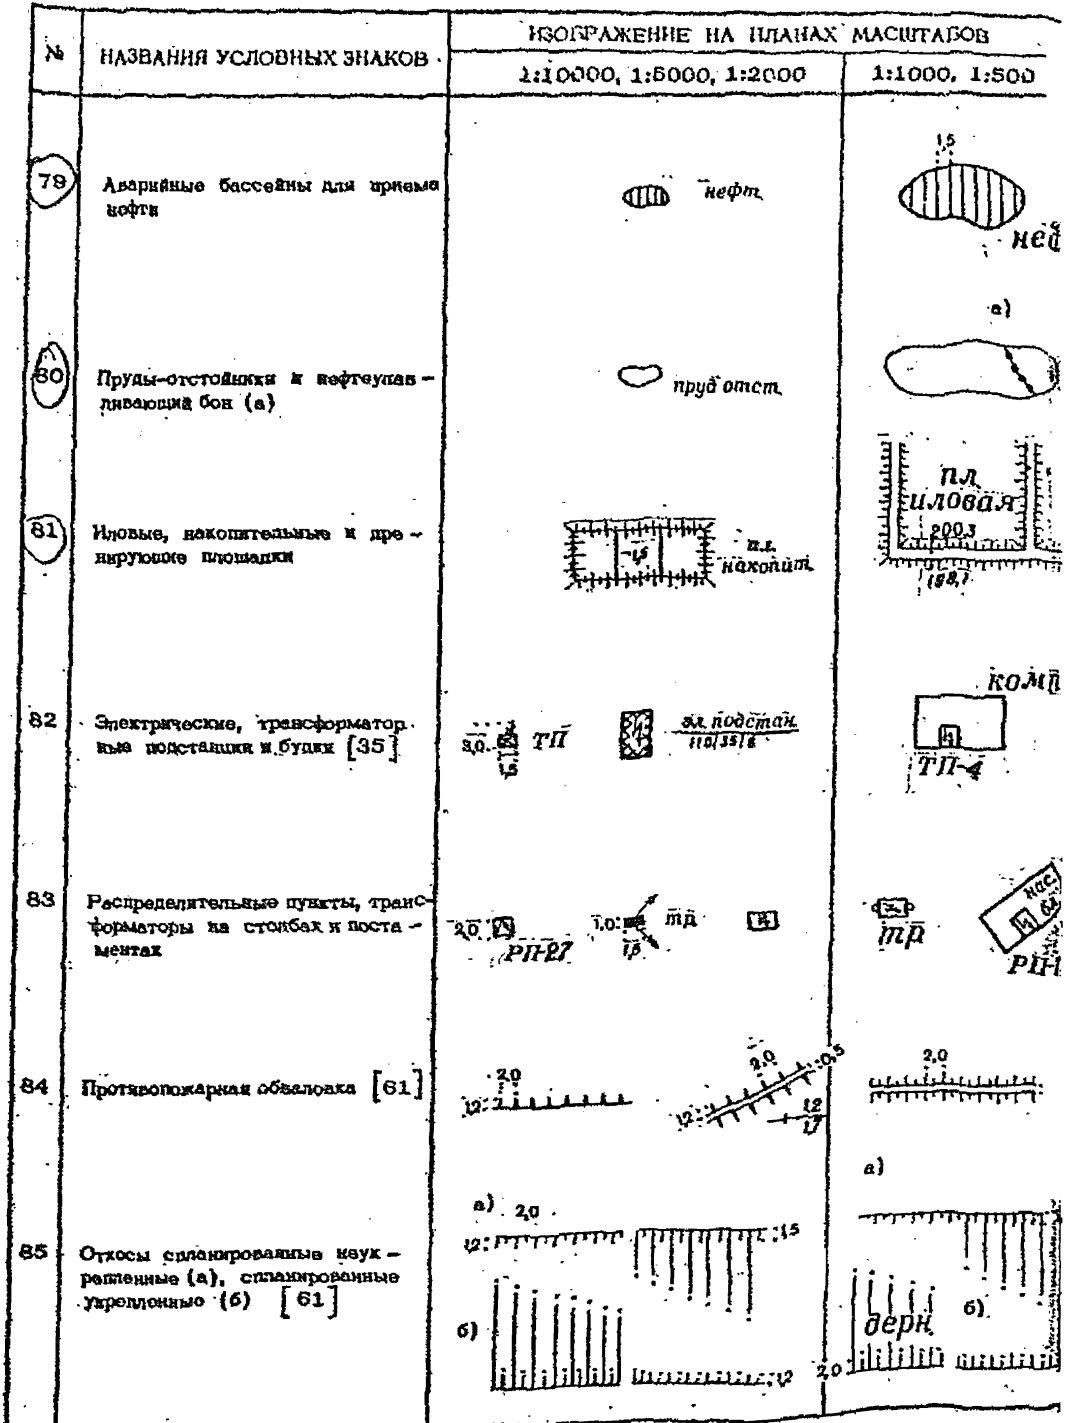 №
НАЗВАНИЯ УСЛОВНЫХ ЗНАКОВ
ИЗОБРАЖЕНИЕ НА ПЛАНАХ МАСШТАБОВ
1:10000, 1:5000, 1:2000
1:1000, 1:500
79
Аварийные бассейны для приема
нефти
нефт.
1,5
80
Пруды-отстойники и нефтеулав –
ливающий бон (а)
пруд отст.
а)
81
Иловые, накопительные и дре –
нирующие площадки
1,5
пл.
накопит.
пл.
иловая
200,3
198,1
82
Электрические, трансформатор
ные подстанции и будки [35]
3,0
1,5
ТП
эл. подстан.
110/35/6
комп
ТП-4
83
Распределительные пункты, транс-
форматоры на столбах и поста –
ментах
2,0
РП-27
1,0
1,5
тр
тр
нас.
РП-1
84
Противопожарная обваловка [61]
1,2
2,0
1,2
2,0
0,5
1,2
1,7
2,0
85
Откосы спланированные неук –
репленные (а), спланированные
укрепленные (б) [61]
а)
2,0
1,2
1,5
б)
1,2
а)
б)
дерн.
2,0